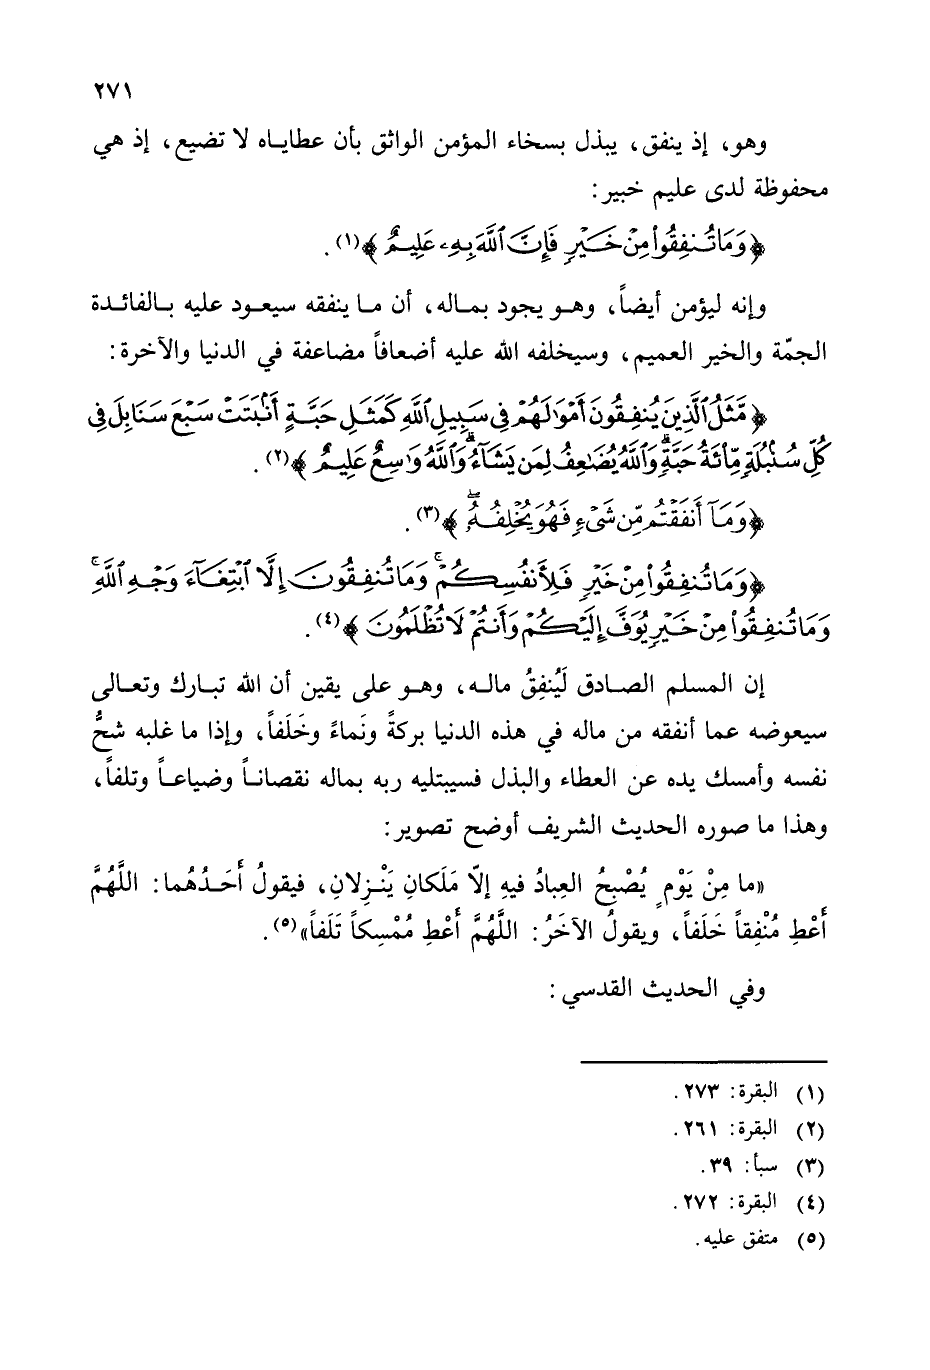 ٢٧١
وهو، إذ ينفق، يبذل بسخاء المؤمن الواثق بأن عطاياه لا تضيع، إذ هي
محفوظة لدى عليم خبير:
﴿وَمَا تُنفِقُوا۟ مِنْ خَيْرٍ فَإِنَّ ٱللَّهَ بِهِۦ عَلِيمٌ﴾(١).
وإنه ليؤمن أيضاً، وهو يجود بماله، أن ما ينفقه سيعود عليه بالفائدة
الجمّة والخير العميم، وسيخلفه الله عليه أضعافاً مضاعفة في الدنيا والآخرة:
﴿مَّثَلُ ٱلَّذِينَ يُنفِقُونَ أَمْوَٰلَهُمْ فِى سَبِيلِ ٱللَّهِ كَمَثَلِ حَبَّةٍ أَنۢبَتَتْ سَبْعَ سَنَابِلَ فِى
كُلِّ سُنۢبُلَةٍ مِّا۟ئَةُ حَبَّةٍ وَٱللَّهُ يُضَٰعِفُ لِمَن يَشَآءُ وَٱللَّهُ وَٰسِعٌ عَلِيمٌ﴾(٢).
﴿وَمَآ أَنفَقْتُم مِّن شَىْءٍ فَهُوَ يُخْلِفُهُۥ﴾(٣).
﴿وَمَا تُنفِقُوا۟ مِنْ خَيْرٍ فَلِأَنفُسِكُمْ ۚ وَمَا تُنفِقُونَ إِلَّا ٱبْتِغَآءَ وَجْهِ ٱللَّهِ ۚ
وَمَا تُنفِقُوا۟ مِنْ خَيْرٍ يُوَفَّ إِلَيْكُمْ وَأَنتُمْ لَا تُظْلَمُونَ﴾(٤).
إن المسلم الصادق لَيُنفِقُ ماله، وهو على يقين أن الله تبارك وتعالى
سيعوضه عما أنفقه من ماله في هذه الدنيا بركةً ونَماءً وخَلَفاً، وإذا ما غلبه شحُّ
نفسه وأمسك يده عن العطاء والبذل فسيبتليه ربه بماله نقصاناً وضياعاً وتلفاً،
وهذا ما صوره الحديث الشريف أوضح تصوير:
«ما مِنْ يَوْمٍ يُصْبِحُ العِبادُ فيهِ إلّا مَلَكانِ يَنْزِلانِ، فيقولُ أَحَدُهُما: اللَّهُمَّ
أَعْطِ مُنْفِقاً خَلَفاً، ويقولُ الآخَرُ: اللَّهُمَّ أَعْطِ مُمْسِكاً تَلَفاً»(٥).
وفي الحديث القدسي:
(١) البقرة: ٢٧٣.
(٢) البقرة: ٢٦١.
(٣) سبأ: ٣٩.
(٤) البقرة: ٢٧٢.
(٥) متفق عليه.